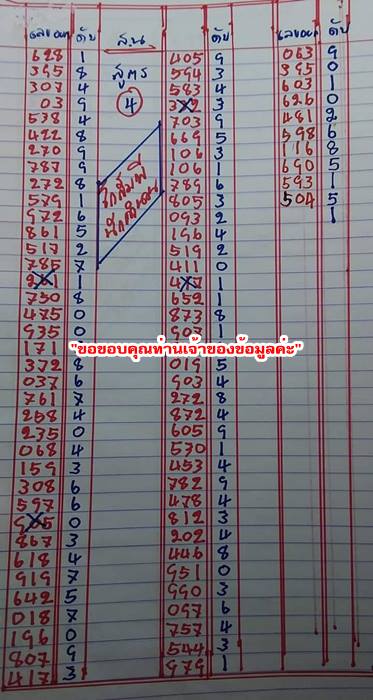 เลขออก ดับ
628 1
395 8
307 4
03 9
538 4
422 8
270 9
787 9
272 8
579 1
972 6
861 5
517 2
785 7
1
750 8
475 0
935 0
171
372 8
037 6
761 7
258 4
235 0
068 4
159 3
308 6
597 6
0
867 3
618 4
919 7
642 5
018 7
196 0
807 9
417 3
สูตร
4
ดับ
405 9
594 3
583 4
3
703 9
669 5
106 3
106 1
789 6
805 3
093 2
196 4
519 2
411 0
1
652 1
873 8
903 1
"ขอขอบคุณท่านเจ้าของข้อมูลค่ะ"
019 5
903 4
272 8
872 4
605 9
530 1
453 4
782 9
478 4
812 3
202 4
446 8
951 0
990 3
097 6
757 4
544 3
979 1
เลขออก ดับ
063 9
395 0
603 1
620 0
481 2
598 6
116 8
690 5
593 1
504 5
1